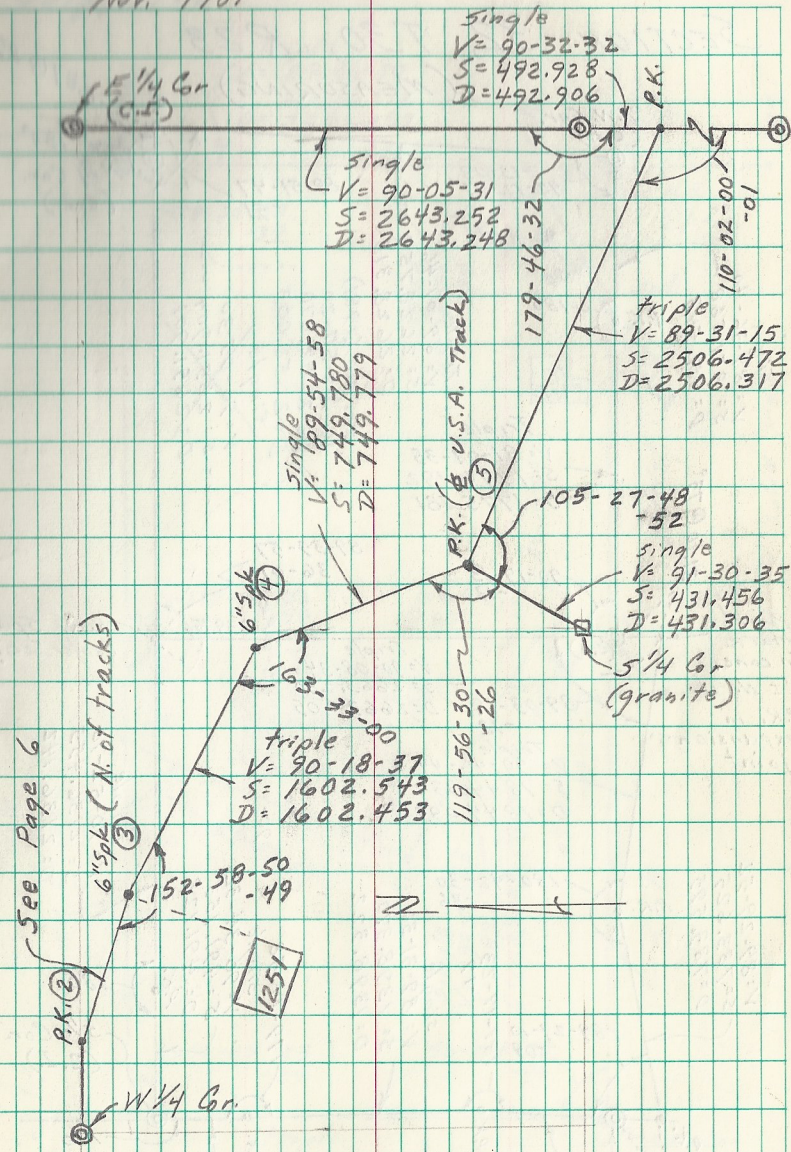 Nov. 1987
single
V= 90-32-32
S= 492.928
D= 492.906
P.K.
E 1/4 Cor
(C.I.)
single
V= 90-05-31
S= 2643.252
D= 2643.248
179-46-32
110-02-00
-01
triple
V= 89-31-15
S= 2506.472
D= 2506.317
single
V= 89-54-58
S= 749.780
D= 749.779
P.K. (℄ U.S.A. Track)
5
105-27-48
-52
single
V= 91-30-35
S= 431.456
D= 431.306
S 1/4 Cor
(granite)
6" Spk
4
163-33-00
119-56-30
-26
triple
V= 90-18-37
S= 1602.543
D= 1602.453
6" Spk. (N. of tracks)
3
152-58-50
-49
N
See Page 6
1251
P.K. 2
W 1/4 Cor.